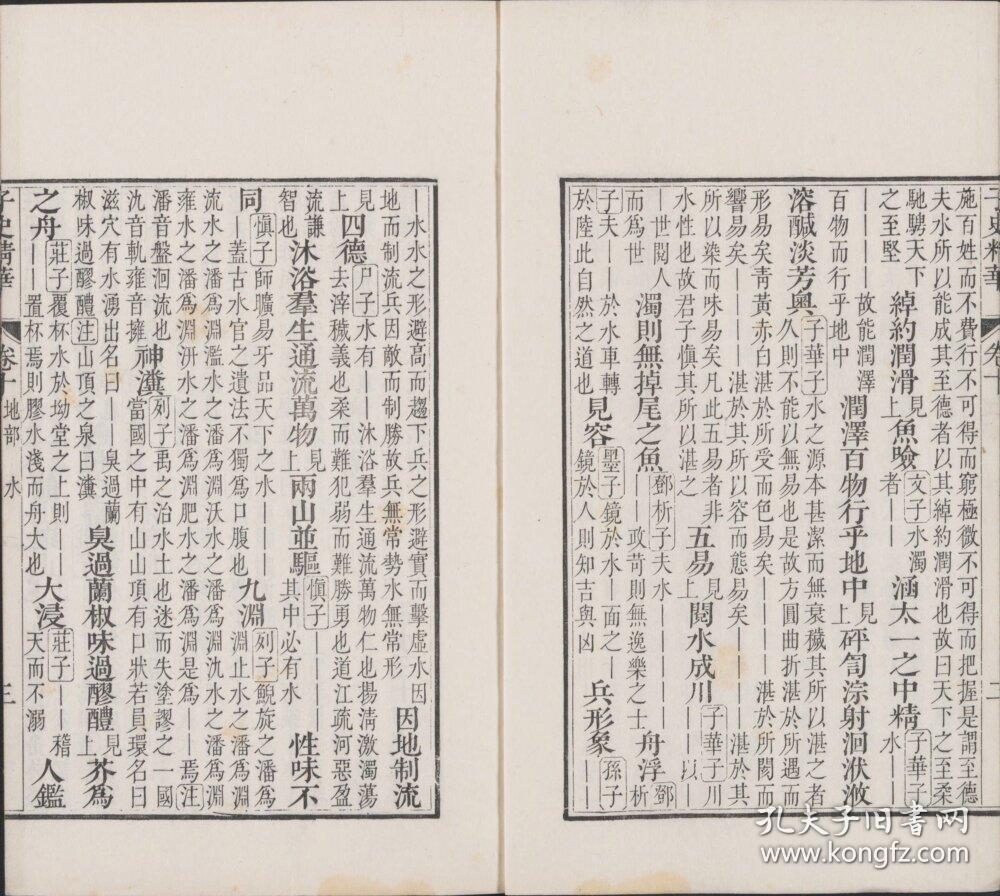 施百姓而不費行不可得而窮極微不可得而把握是謂至德
夫水所以能成其至德者以其綽約潤滑也故曰天下之至柔
馳騁天下
之至堅
綽約潤滑
見上
魚噞
文子水濁
者——
涵太一之中精
子華子
水——
————故能潤澤
百物而行乎地中
潤澤百物行乎地中
見上
砰訇淙射洄洑
溶醎淡芳奧
子華子水之源本甚潔而無衰穢其所以湛之者
久則不能以無易也是故方圓曲折湛於所遇而
形易矣青黃赤白湛於所受而色易矣————湛於所閡而
響易矣————湛於其所以容而態易矣————湛於其
所以染而味易矣凡此五易者非
水性也故君子愼其所以湛之
五易
見上
閱水成川
子華子川
————以
—世閱人
而爲世
濁則無掉尾之魚
鄧析子夫水
————政苛則無逸樂之士
舟浮
鄧
析
子夫——於水車轉
於陸此自然之道也
見容
墨子鏡於水——面之——
鏡於人則知吉與凶
兵形象
孫子
子史精華 卷十 二
—水水之形避高而趨下兵之形避實而擊虛水因
地而制流兵因敵而制勝故兵無常勢水無常形
因地制流
見上
四德
尸子水有——沐浴羣生通流萬物仁也揚淸激濁蕩
去滓穢義也柔而難犯弱而難勝勇也道江疏河惡盈
流謙
智也
沐浴羣生通流萬物
見上
兩山並驅
愼子————
其中必有水
性味不
同
愼子師曠易牙品天下之水———
—蓋古水官之遺法不獨爲口腹也
九淵
列子鯢旋之潘爲
淵止水之潘爲淵
流水之潘爲淵濫水之潘爲淵沃水之潘爲淵氿水之潘爲淵
雍水之潘爲淵汧水之潘爲淵肥水之潘爲淵是爲——焉注
潘音盤洄流也
氿音軌雍音擁
神瀵
列子禹之治水土也迷而失塗謬之一國
當國之中有山山頂有口狀若員環名曰
滋穴有水湧出名曰——臭過蘭
椒味過醪醴注山頂之泉曰瀵
臭過蘭椒味過醪醴
見上
芥爲
之舟
莊子覆杯水於坳堂之上則——
——置杯焉則膠水淺而舟大也
大浸
莊子——稽
天而不溺
人鑑
子史精華 卷十 地部 水 三
孔夫子旧书网
www.kongfz.com